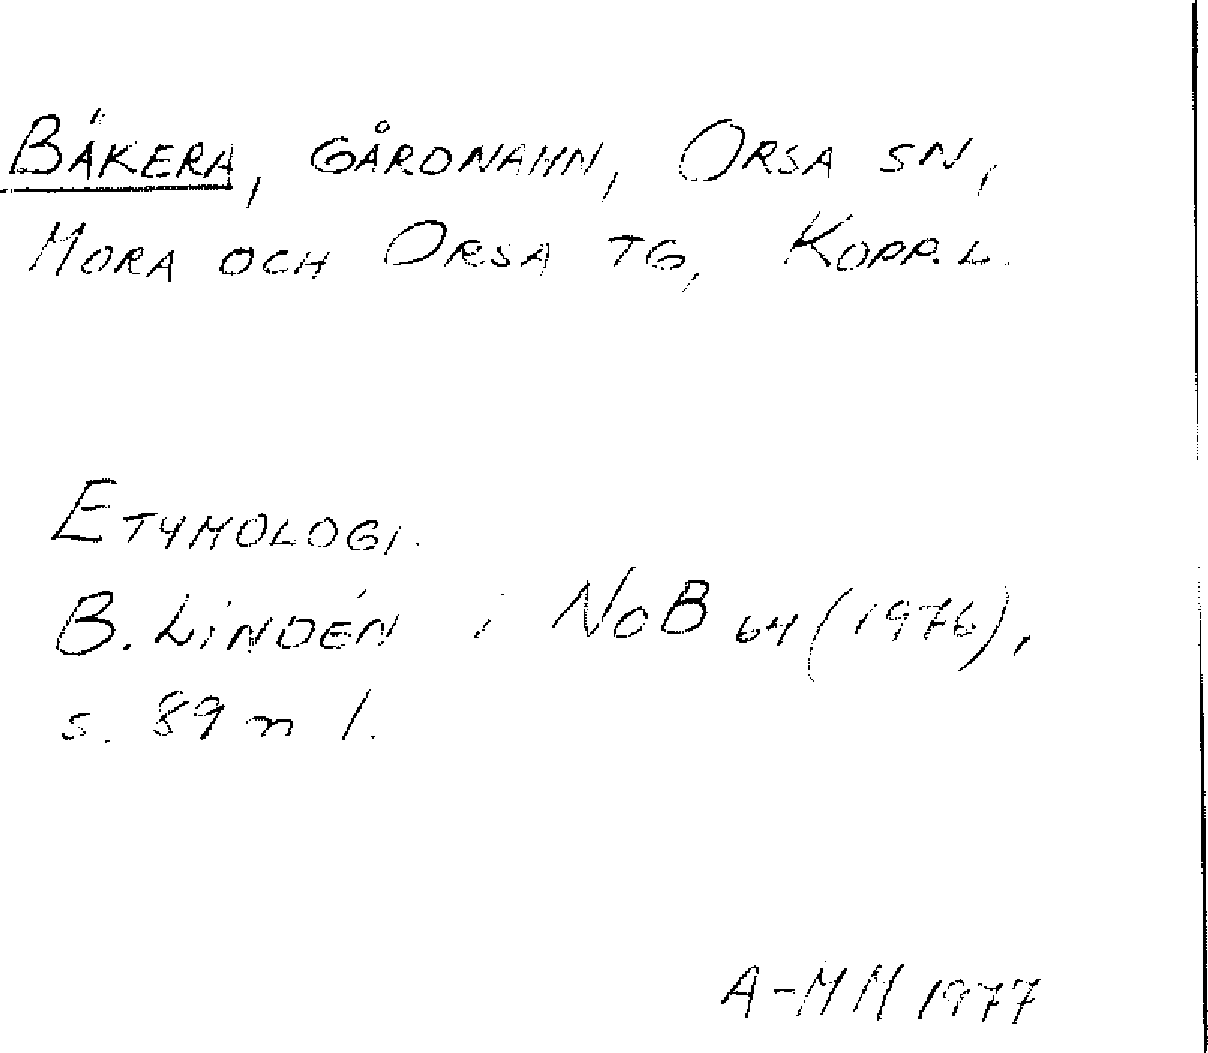 BÄKERA, GÅRDNAMN, ORSA SN,
MORA OCH ORSA TG, KOPP. L.
ETYMOLOGI.
B. LINDÉN i NoB 64 (1976),
s. 89 n 1.
A-MM 1977